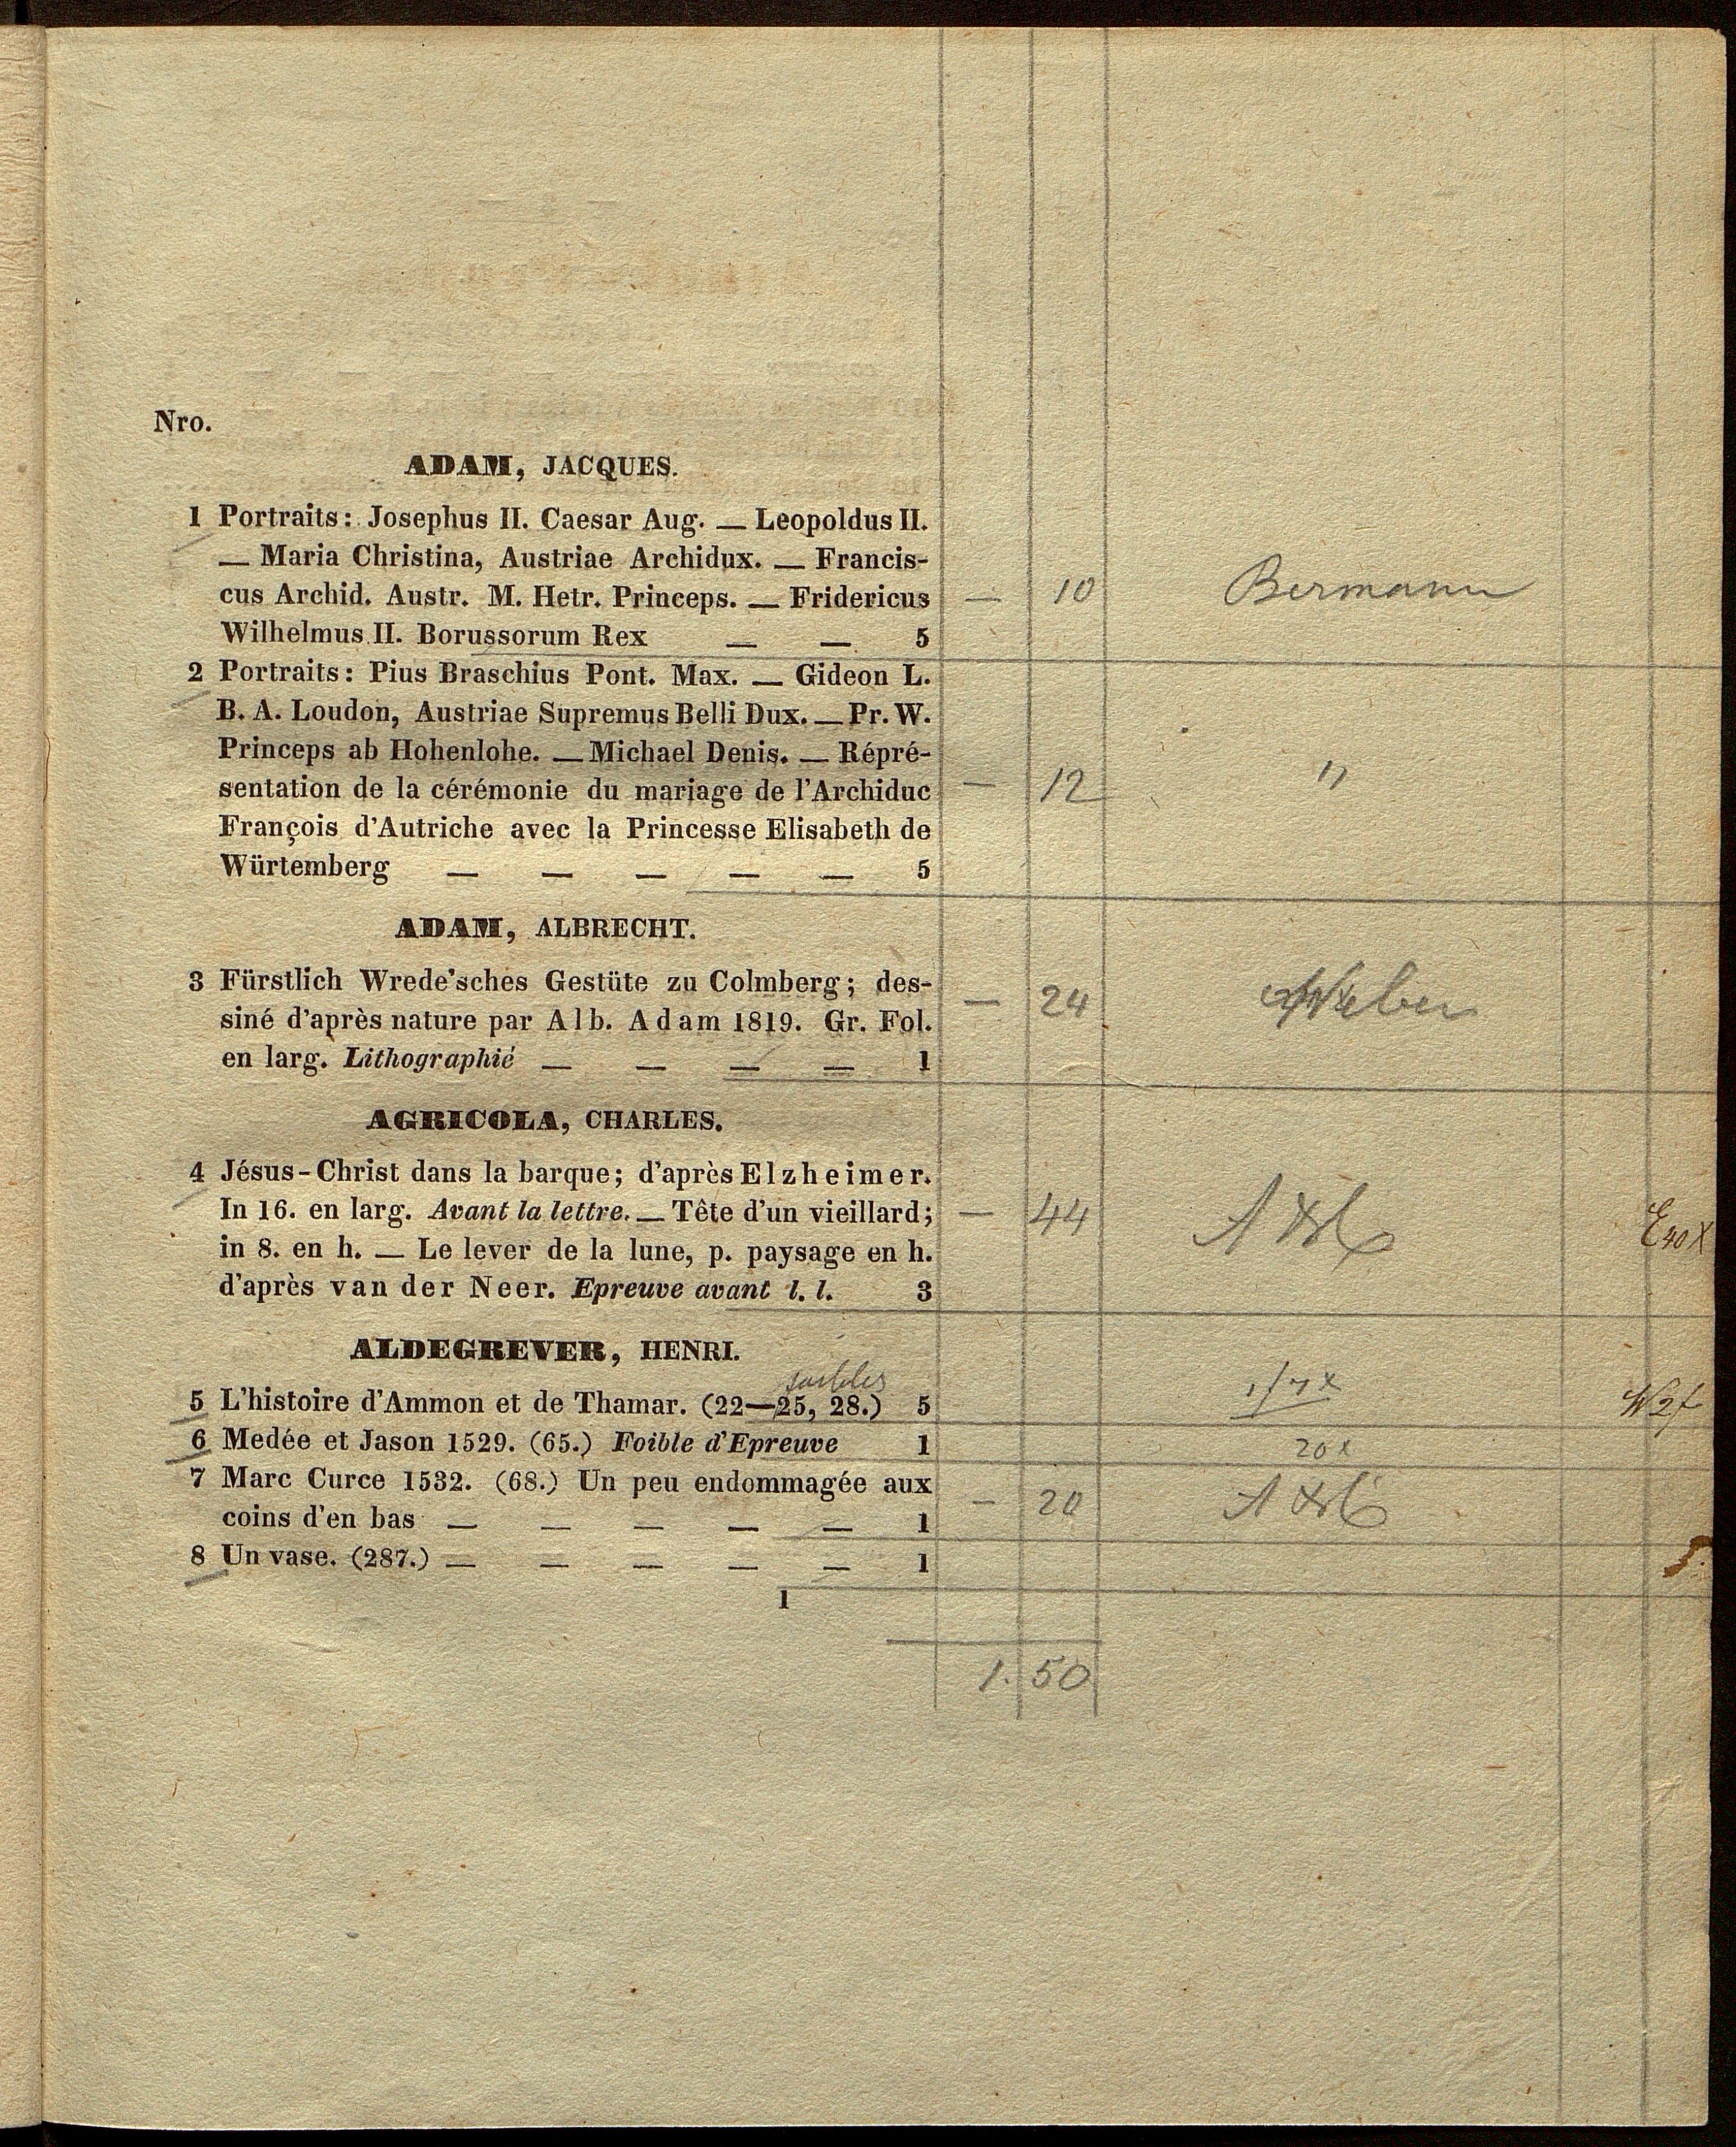 Nro.
ADAM, JACQUES.
1 Portraits: Josephus II. Caesar Aug. — Leopoldus II.
— Maria Christina, Austriae Archidux. — Francis-
cus Archid. Austr. M. Hetr. Princeps. — Fridericus — 10 Bermann
Wilhelmus II. Borussorum Rex — — 5
2 Portraits: Pius Braschius Pont. Max. — Gideon L.
B. A. Loudon, Austriae Supremus Belli Dux. — Pr. W.
Princeps ab Hohenlohe. — Michael Denis. — Répré-
sentation de la cérémonie du mariage de l'Archiduc — 12 "
François d'Autriche avec la Princesse Elisabeth de
Würtemberg — — — — — 5
ADAM, ALBRECHT.
3 Fürstlich Wrede'sches Gestüte zu Colmberg; des-
siné d'après nature par Alb. Adam 1819. Gr. Fol. — 24 Weber
en larg. Lithographié — — — — 1
AGRICOLA, CHARLES.
4 Jésus-Christ dans la barque; d'après Elzheimer.
In 16. en larg. Avant la lettre. — Tête d'un vieillard; — 44
in 8. en h. — Le lever de la lune, p. paysage en h.
d'après van der Neer. Epreuve avant l. l. 3
ALDEGREVER, HENRI.
5 L'histoire d'Ammon et de Thamar. (22—25, 28.) 5
6 Medée et Jason 1529. (65.) Foible d'Epreuve 1 20x
7 Marc Curce 1532. (68.) Un peu endommagée aux
coins d'en bas — — — — — 1 — 20
8 Un vase. (287.) — — — — — 1
1
1. 50